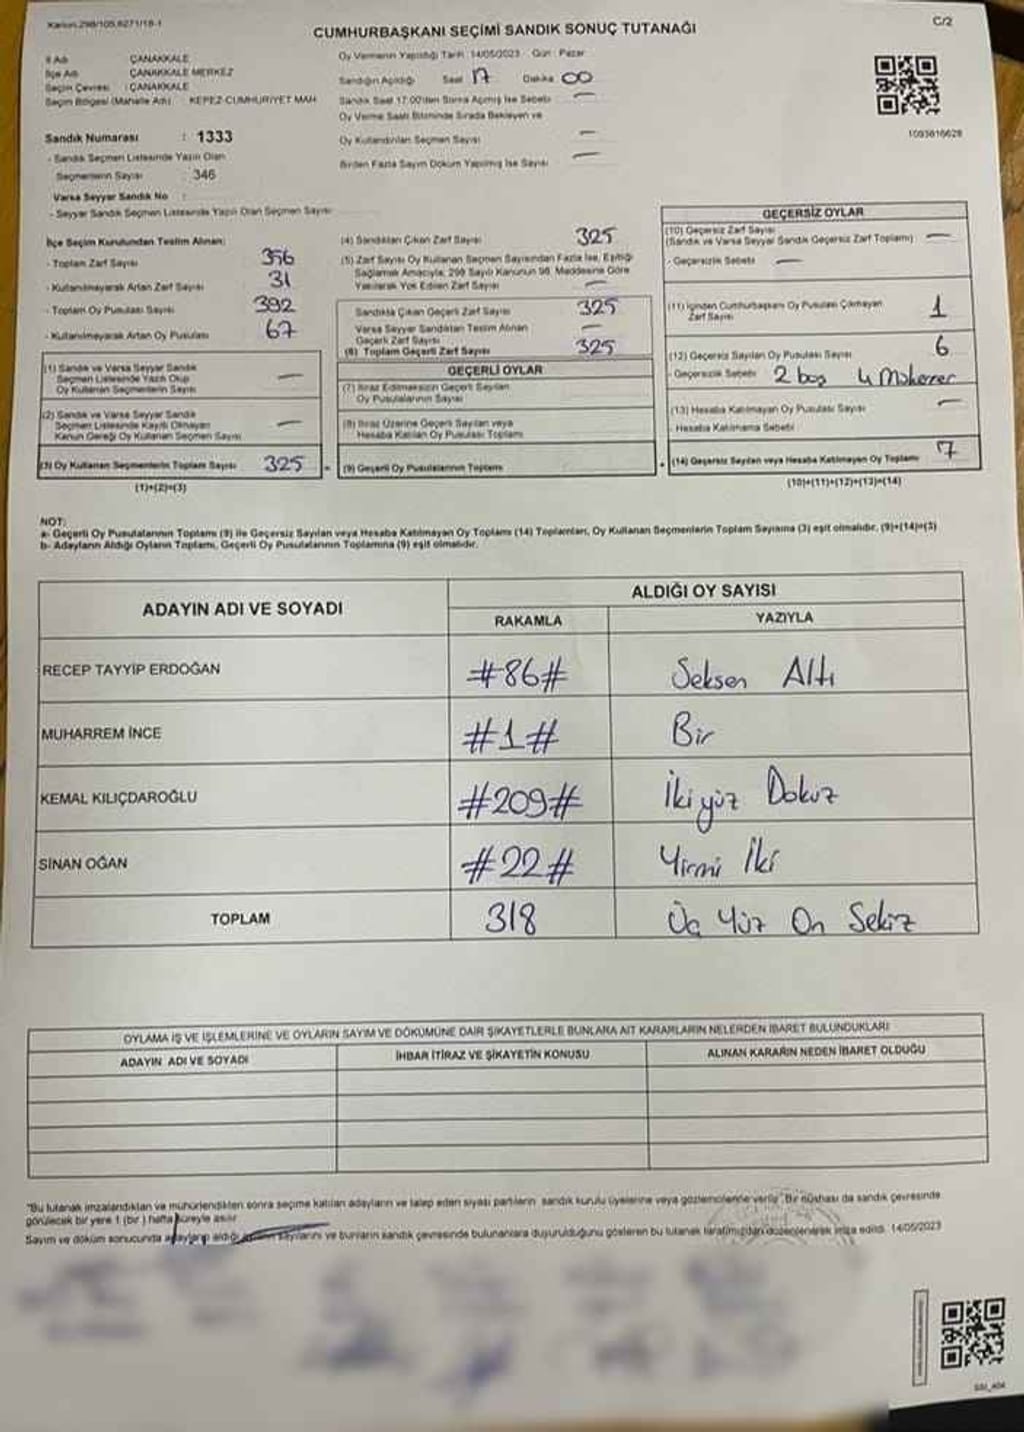 Kanun.298/105,6271/18-1
C/2
CUMHURBAŞKANI SEÇİMİ SANDIK SONUÇ TUTANAĞI
İl Adı ÇANAKKALE
İlçe Adı ÇANAKKALE MERKEZ
Seçim Çevresi : ÇANAKKALE
Seçim Bölgesi (Mahalle Adı) KEPEZ-CUMHURİYET MAH
Sandık Numarası : 1333
- Sandık Seçmen Listesinde Yazılı Olan
Seçmenlerin Sayısı 346
Varsa Seyyar Sandık No :
- Seyyar Sandık Seçmen Listesinde Yazılı Olan Seçmen Sayısı
Oy Vermenin Yapıldığı Tarih 14/05/2023 Gün : Pazar
Sandığın Açıldığı Saat 17 Dakika 00
Sandık Saat 17.00'den Sonra Açılmış İse Sebebi —
Oy Verme Saati Bitiminde Sırada Bekleyen ve
Oy Kullandırılan Seçmen Sayısı —
Birden Fazla Sayım Döküm Yapılmış İse Sayısı —
1093616628
İlçe Seçim Kurulundan Teslim Alınan:
- Toplam Zarf Sayısı 356
- Kullanılmayarak Artan Zarf Sayısı 31
- Toplam Oy Pusulası Sayısı 392
- Kullanılmayarak Artan Oy Pusulası 67
(1) Sandık ve Varsa Seyyar Sandık
Seçmen Listesinde Yazılı Olup
Oy Kullanan Seçmenlerin Sayısı —
(2) Sandık ve Varsa Seyyar Sandık
Seçmen Listesinde Kayıtlı Olmayan
Kanun Gereği Oy Kullanan Seçmen Sayısı —
(3) Oy Kullanan Seçmenlerin Toplam Sayısı 325
(1)+(2)=(3)
(4) Sandıktan Çıkan Zarf Sayısı 325
(5) Zarf Sayısı Oy Kullanan Seçmen Sayısından Fazla İse, Eşitliği
Sağlamak Amacıyla, 298 Sayılı Kanunun 98. Maddesine Göre
Yakılarak Yok Edilen Zarf Sayısı —
Sandıkta Çıkan Geçerli Zarf Sayısı 325
Varsa Seyyar Sandıktan Teslim Alınan
Geçerli Zarf Sayısı —
(6) Toplam Geçerli Zarf Sayısı 325
GEÇERLİ OYLAR
(7) İtiraz Edilmeksizin Geçerli Sayılan
Oy Pusulalarının Sayısı
(8) İtiraz Üzerine Geçerli Sayılan veya
Hesaba Katılan Oy Pusulası Toplamı
(9) Geçerli Oy Pusulalarının Toplamı
GEÇERSİZ OYLAR
(10) Geçersiz Zarf Sayısı
(Sandık ve Varsa Seyyar Sandık Geçersiz Zarf Toplamı) —
- Geçersizlik Sebebi —
(11) İçinden Cumhurbaşkanı Oy Pusulası Çıkmayan
Zarf Sayısı 1
(12) Geçersiz Sayılan Oy Pusulası Sayısı 6
- Geçersizlik Sebebi 2 boş 4 Mükerrer
(13) Hesaba Katılmayan Oy Pusulası Sayısı —
- Hesaba Katılmama Sebebi
(14) Geçersiz Sayılan veya Hesaba Katılmayan Oy Toplamı 7
(10)+(11)+(12)+(13)=(14)
NOT:
a- Geçerli Oy Pusulalarının Toplamı (9) ile Geçersiz Sayılan veya Hesaba Katılmayan Oy Toplamı (14) Toplamları, Oy Kullanan Seçmenlerin Toplam Sayısına (3) eşit olmalıdır. (9)+(14)=(3)
b- Adayların Aldığı Oyların Toplamı, Geçerli Oy Pusulalarının Toplamına (9) eşit olmalıdır.
ADAYIN ADI VE SOYADI
ALDIĞI OY SAYISI
RAKAMLA YAZIYLA
RECEP TAYYİP ERDOĞAN #86# Seksen Altı
MUHARREM İNCE #1# Bir
KEMAL KILIÇDAROĞLU #209# İkiyüz Dokuz
SİNAN OĞAN #22# Yirmi İki
TOPLAM 318 Üç Yüz On Sekiz
OYLAMA İŞ VE İŞLEMLERİNE VE OYLARIN SAYIM VE DÖKÜMÜNE DAİR ŞİKAYETLERLE BUNLARA AİT KARARLARIN NELERDEN İBARET BULUNDUKLARI
ADAYIN ADI VE SOYADI İHBAR İTİRAZ VE ŞİKAYETİN KONUSU ALINAN KARARIN NEDEN İBARET OLDUĞU
"Bu tutanak imzalandıktan ve mühürlendikten sonra seçime katılan adayların ve talep eden siyasi partilerin sandık kurulu üyelerine veya gözlemcilerine verilir". Bir nüshası da sandık çevresinde
görülecek bir yere 1 (bir) hafta süreyle asılır
Sayım ve döküm sonucunda adayların aldığı oyların sayılarını ve bunların sandık çevresinde bulunanlara duyurulduğunu gösteren bu tutanak tarafımızdan düzenlenerek imza edildi. 14/05/2023